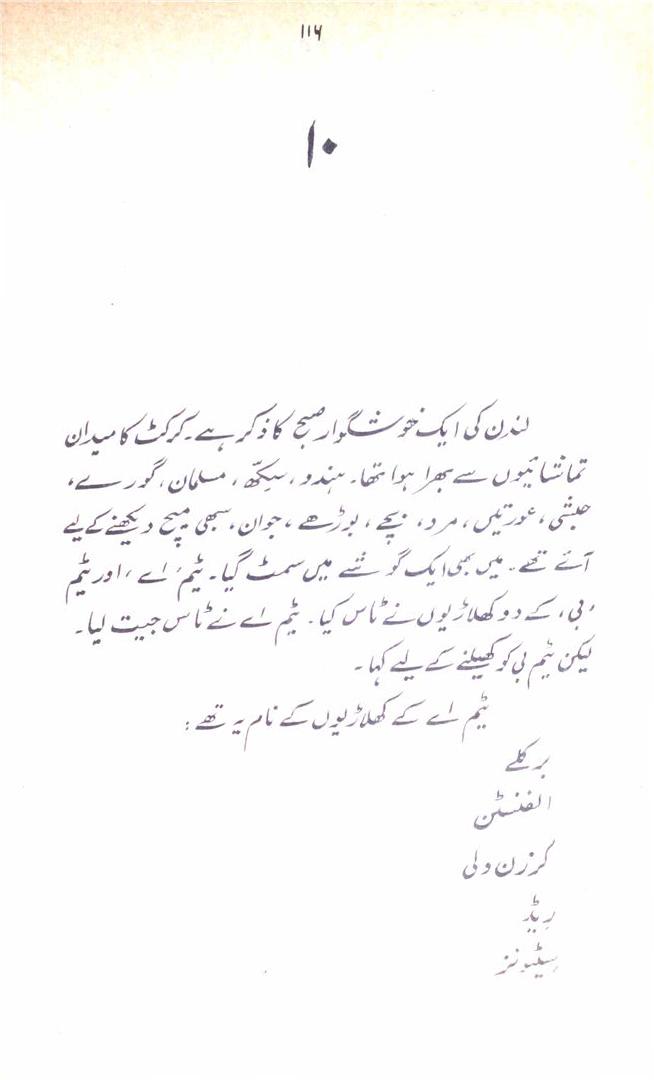 ۱۱۶
۱۰
لندن کی ایک خوشگوار صبح کا ذکر ہے۔ کرکٹ کا میدان
تماشائیوں سے بھرا ہوا تھا۔ ہندو، سکھ، مسلمان، گورے،
حبشی، عورتیں، مرد، بچے، بوڑھے، جوان، سبھی میچ دیکھنے کے لیے
آئے تھے۔ میں بھی ایک گوشے میں سمٹ گیا۔ ٹیم ’اے‘ اور ٹیم
’بی‘ کے دو کھلاڑیوں نے ٹاس کیا۔ ٹیم اے نے ٹاس جیت لیا۔
لیکن ٹیم بی کو کھیلنے کے لیے کہا۔
ٹیم اے کے کھلاڑیوں کے نام یہ تھے:
برکلے
الفنسٹن
کرزن ولی
ریڈ
سٹیونز